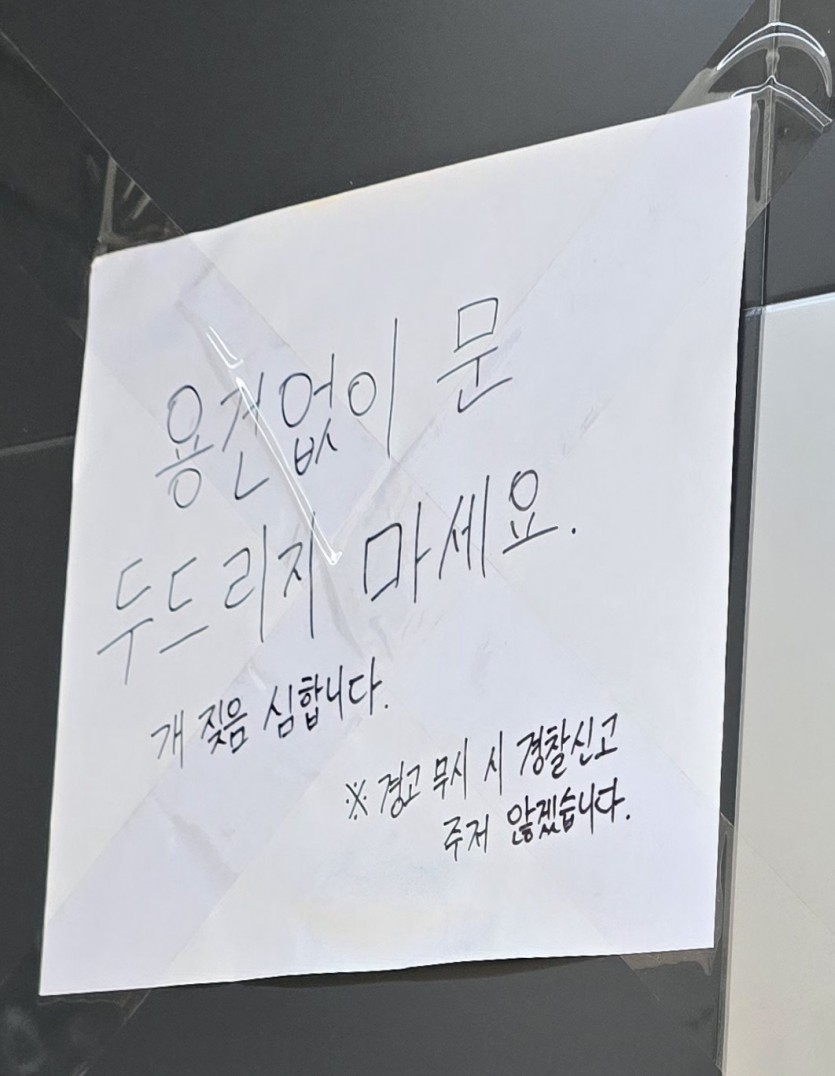 용건없이 문
두드리지 마세요.
개 짖음 심합니다.
※ 경고 무시 시 경찰신고
주저 않겠습니다.